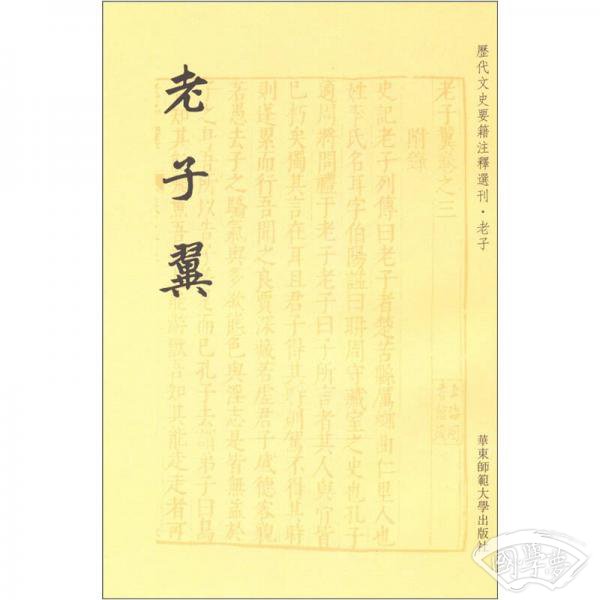 歷代文史要籍注釋選刊·老子
華東師範大學出版社
老子翼
老子翼卷之三
附錄
史記老子列傳曰老子者楚苦縣厲鄉曲仁里人也
姓李氏名耳字伯陽謚曰聃周守藏室之史也孔子
適周將問禮于老子老子曰子所言者其人與骨皆
已朽矣獨其言在耳且君子得其時則駕不得其時
則蓬累而行吾聞之良賈深藏若虛君子盛德容貌
若愚去子之驕氣與多欲態色與淫志是皆無益於
所以而已孔子去謂弟子曰鳥
知其魚吾能游獸吾知其能走走者可
國學夢